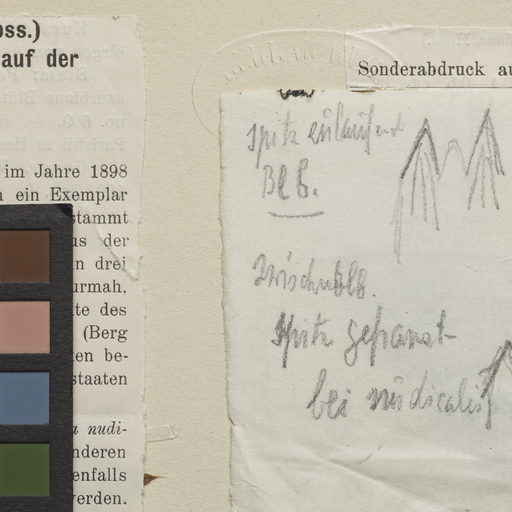 oss.)
auf der
im Jahre 1898
ein Exemplar
stammt
us der
n drei
urmah,
te des
(Berg
en be-
staaten
nudi-
nderen
enfalls
erden.
Sonderabdruck au
spitz einlaufend
Blb.
Zwischenblb.
spitz gefranst
bei nudicalis